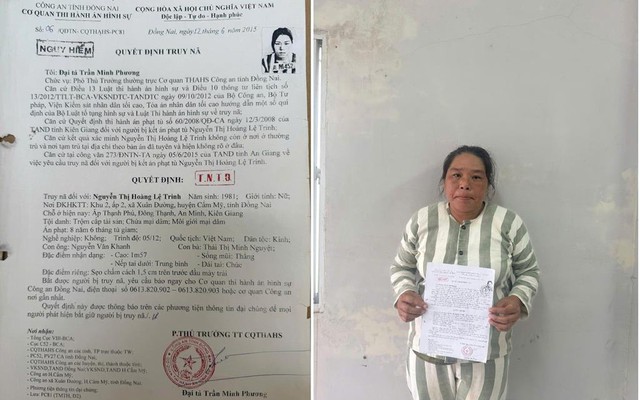 CÔNG AN TỈNH ĐỒNG NAI
CƠ QUAN THI HÀNH ÁN HÌNH SỰ
CỘNG HÒA XÃ HỘI CHỦ NGHĨA VIỆT NAM
Độc lập - Tự do - Hạnh phúc
Số: 06 /QĐTN- CQTHAHS-PC81
Đồng Nai, ngày 12 tháng 6 năm 2015
NGUY HIỂM
QUYẾT ĐỊNH TRUY NÃ
Tôi: Đại tá Trần Minh Phương
Chức vụ: Phó Thủ Trưởng thường trực Cơ quan THAHS Công an tỉnh Đồng Nai.
Căn cứ Điều 13 Luật thi hành án hình sự và Điều 10 thông tư liên tịch số
13/2012/TTLT-BCA-VKSNDTC-TANDTC ngày 09/10/2012 của Bộ Công an, Bộ Tư
pháp, Viện Kiểm sát nhân dân tối cao, Tòa án nhân dân tối cao hướng dẫn một số qui
định của Bộ Luật tố tụng hình sự và Luật thi hành án hình sự về truy nã;
Căn cứ Quyết định thi hành án phạt tù số 60/2008/QĐ-CA ngày 12/3/2008 của
TAND tỉnh Kiên Giang đối với người bị kết án phạt tù Nguyễn Thị Hoàng Lệ Trinh;
Căn cứ kết quả xác minh Nguyễn Thị Hoàng Lệ Trinh không còn ở nơi ở thường
trú và nơi tạm trú tại địa chỉ theo bản án đã tuyên và hiện không rõ ở đâu;
Căn cứ tại công văn 273/ĐNTN-TA ngày 05/6/2015 của TAND tỉnh An Giang về
việc yêu cầu truy nã đối với người bị kết án phạt tù Nguyễn Thị Hoàng Lệ Trinh.
QUYẾT ĐỊNH:
T.N.T.9
Truy nã đối với: Nguyễn Thị Hoàng Lệ Trinh Năm sinh: 1981; Giới tính: Nữ;
Nơi ĐKHKTT: Khu 2, ấp 2, xã Xuân Đường, huyện Cẩm Mỹ, tỉnh Đồng Nai
Chỗ ở hiện nay: Ấp Thạnh Phú, Đông Thạnh, An Minh, Kiên Giang
Tội danh: Trộm cắp tài sản; Chứa mại dâm; Môi giới mại dâm
Án phạt: 8 năm 6 tháng tù giam;
Nghề nghiệp: Không; Trình độ: 05/12; Quốc tịch: Việt Nam; Dân tộc: Kinh;
Con ông: Nguyễn Văn Khanh Con bà: Thái Thị Minh Nguyệt;
Đặc điểm nhận dạng: - Cao: 1m57 - Sống mũi: Thẳng
- Nếp tai dưới: Trung bình - Dái tai: Chúc
Đặc điểm riêng: Sẹo chấm cách 1,5 cm trên trước đầu mày trái
Bắt được người bị truy nã, yêu cầu báo ngay cho Cơ quan thi hành án hình sự
Công an Đồng Nai, điện thoại số 0613.820.902 – 0613.820.903 hoặc cơ quan Công an
nơi gần nhất.
Quyết định này được thông báo trên các phương tiện thông tin đại chúng để mọi
người phát hiện bắt giữ người bị truy nã./.
Nơi nhận:
- Tổng Cục VIII-BCA;
- Cục C52 - BCA;
- CQTHAHS Công an các tỉnh, TP trực thuộc TW;
- PC52, PV27 CA tỉnh Đồng Nai;
- VKSND,TAND Đồng Nai;
- Công an H.Cẩm Mỹ;
- Phương tiện thông tin đại chúng;
- Lưu: PC81
P.THỦ TRƯỞNG TT CQTHAHS
Đại tá Trần Minh Phương